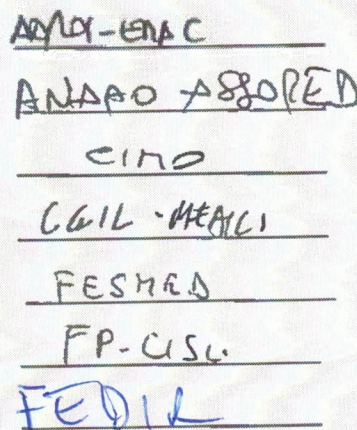 ANAAO ASSOMED
CIMO
CGIL-MEDICI
FESMED
FP-CISL
FEDIR